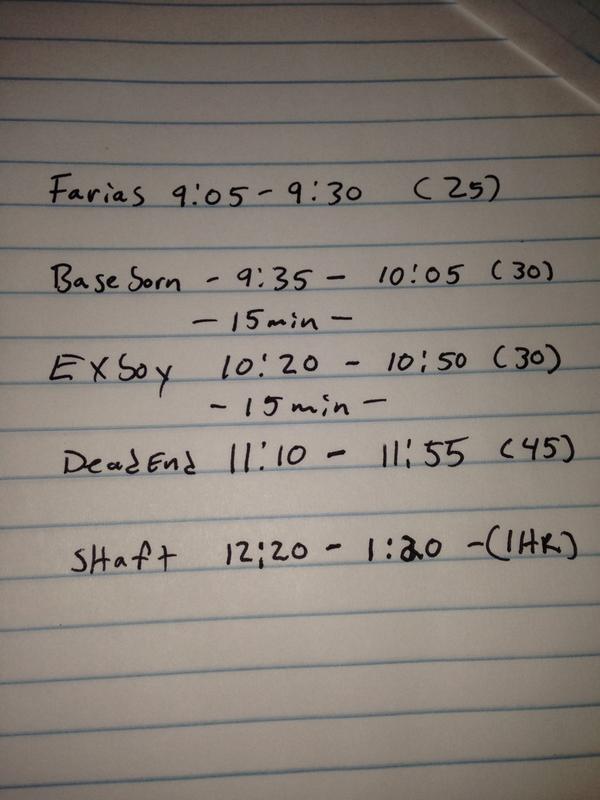 Farias 9:05 - 9:30 (25)
Baseborn - 9:35 - 10:05 (30)
- 15 min -
EXboy 10:20 - 10:50 (30)
- 15 min -
DeadEnd 11:10 - 11:55 (45)
SHaft 12:20 - 1:20 - (1HR)